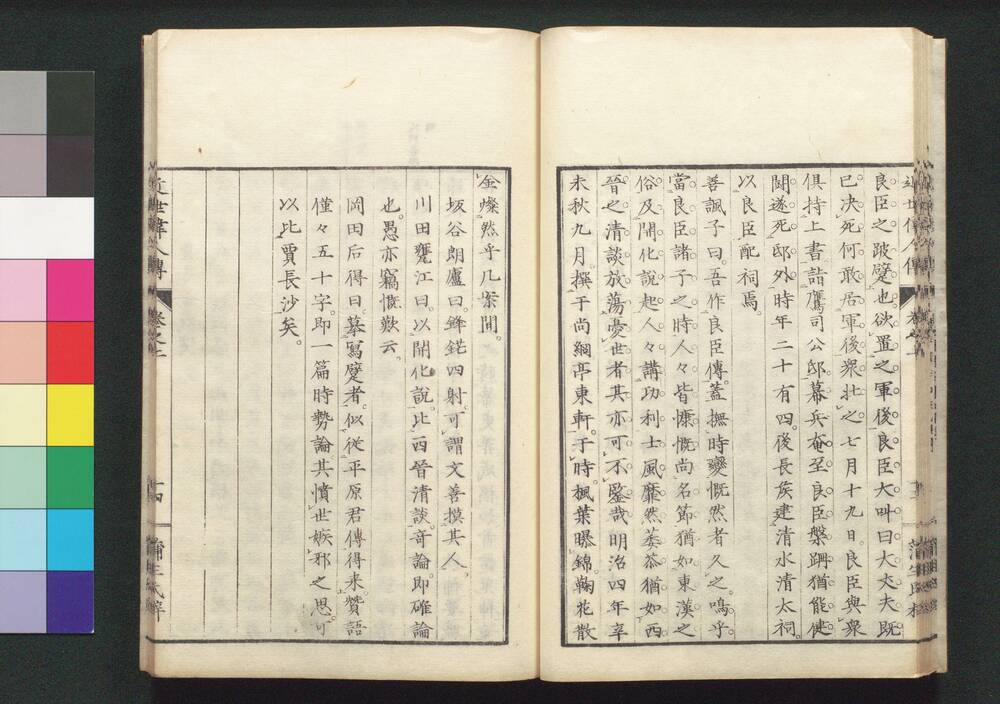 良臣之跛躄也欲置之軍後良臣大叫曰大丈夫既
已決死何敢居軍後衆壯之七月十九日良臣與衆
俱持上書詣鷹司公邸幕兵奄至良臣槃跚猶能健
鬪遂死邸外時年二十有四後長矦建清水清太祠
以良臣配祠焉。
善諷子曰。吾作良臣傳。蓋撫時變慨然者久之。嗚乎。
當良臣諸子之時人々皆慷慨尚名節猶如東漢之
俗及開化說起人々講功利士風靡然萎苶猶如西
晉之清談放蕩憂世者其亦可不鑒哉明治四年辛
未秋九月。撰于尚絅亭東軒。于時。楓葉曝錦。鞠花散
金。燦然乎几案間。
坂谷朗廬曰。鋒鋩四射。可謂文善摸其人。
川田甕江曰。以開化說。比西晉清談。奇論。即確論
也。愚亦竊慨歎云。
岡田后得曰。摹寫躄者。似從平原君傳得来。贊語
僅々五十字。即一篇時勢論其憤世嫉邪之思。可
以比賈長沙矣。
近世偉人傳
十四
蒲生氏梓